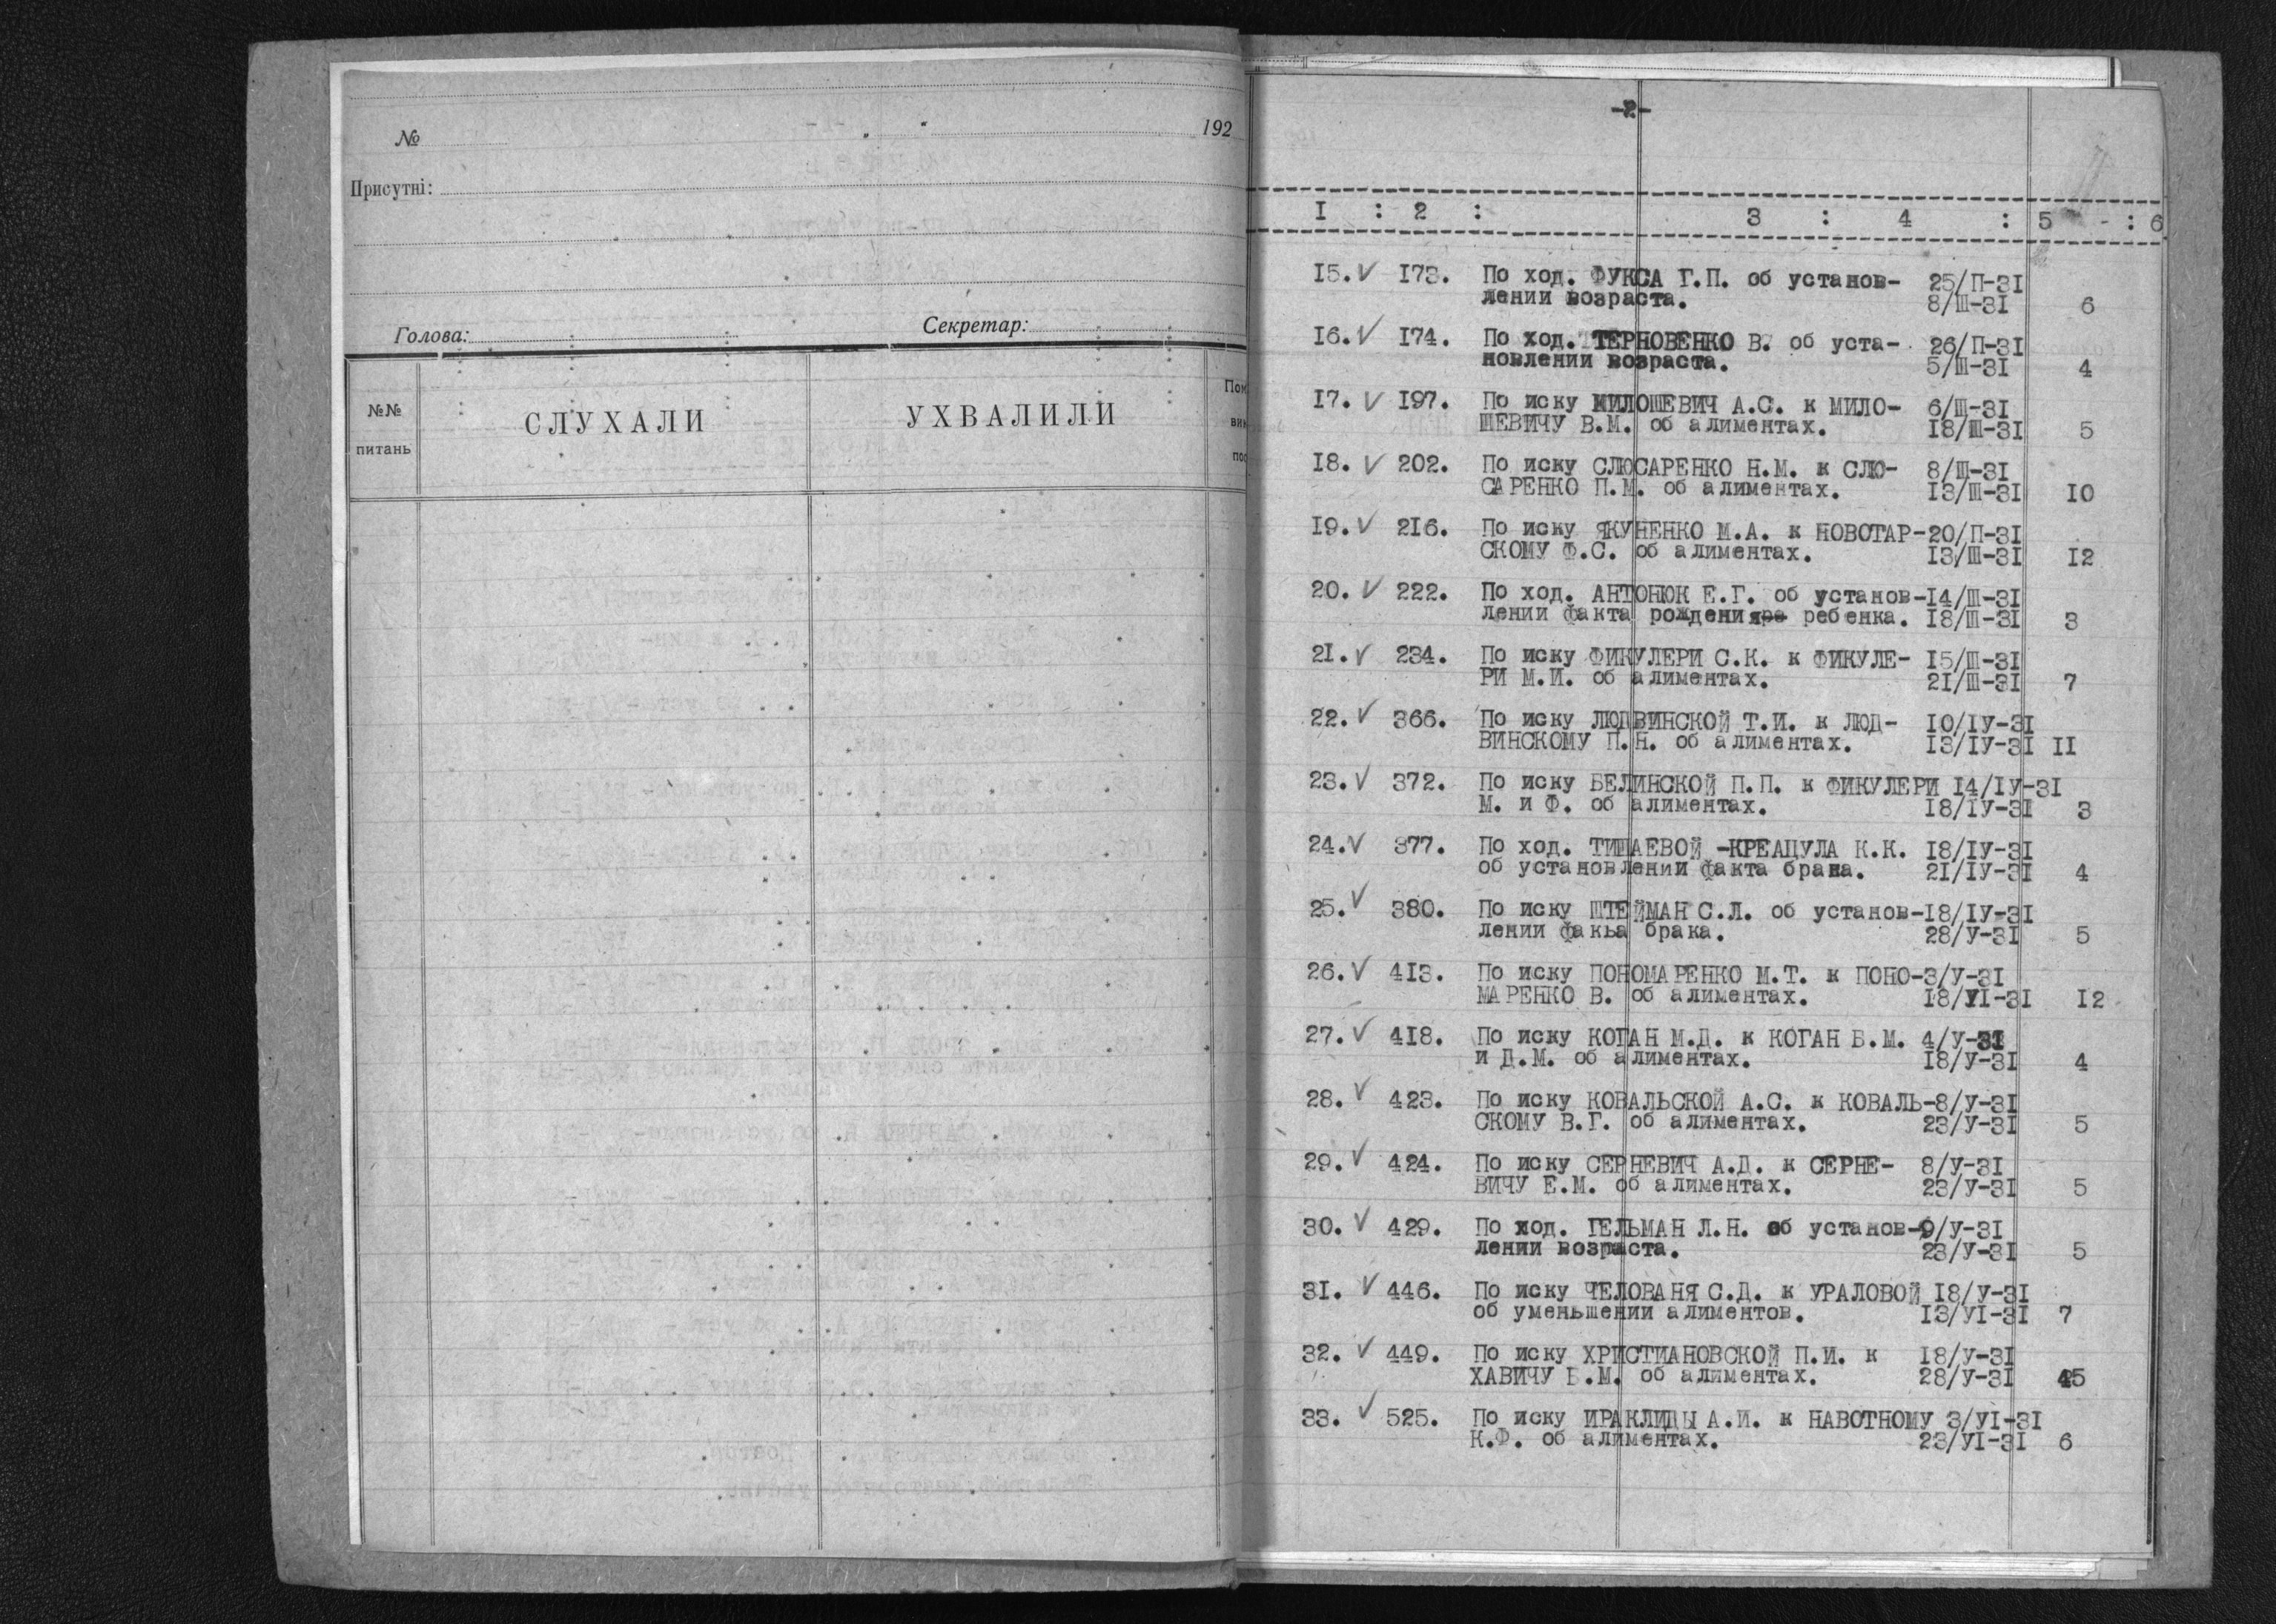 № „ “ 192
Присутні:
Голова: Секретар:
№№ питань
СЛУХАЛИ
УХВАЛИЛИ
-2-
I : 2 : 3 : 4 : 5 - : 6
I5. V I73. По ход. ФУКСА Г.П. об установ- 25/П-3I
лении возраста. 8/Ш-3I 6
I6. V I74. По ход. ТЕРНОВЕНКО В. об уста- 26/П-3I
новлении возраста. 5/Ш-3I 4
I7. V I97. По иску МИЛОШЕВИЧ А.С. к МИЛО- 6/Ш-3I
ШЕВИЧУ В.М. об алиментах. I8/Ш-3I 5
I8. V 202. По иску СЛЮСАРЕНКО Н.М. к СЛЮ- 8/Ш-3I
САРЕНКО П.М. об алиментах. I3/Ш-3I I0
I9. V 2I6. По иску ЯКУНЕНКО М.А. к НОВОТАР-20/П-3I
СКОМУ Ф.С. об алиментах. I3/Ш-3I I2
20. V 222. По ход. АНТОНЮК Е.Г. об установ-I4/Ш-3I
лении факта рождения ребенка. I8/Ш-3I 3
2I. V 234. По иску ФИКУЛЕРИ С.К. к ФИКУЛЕ- I5/Ш-3I
РИ М.И. об алиментах. 2I/Ш-3I 7
22. V 366. По иску ЛЮДВИНСКОЙ Т.И. к ЛЮД- I0/IУ-3I
ВИНСКОМУ П.Н. об алиментах. I3/IУ-3I II
23. V 372. По иску БЕЛИНСКОЙ П.П. к ФИКУЛЕРИ I4/IУ-3I
М. и Ф. об алиментах. I8/IУ-3I 3
24. V 377. По ход. ТИШАЕВОЙ -КРЕАЦУЛА К.К. I8/IУ-3I
об установлении факта брака. 2I/IУ-3I 4
25. V 380. По иску ШТЕЙМАН С.Л. об установ-I8/IУ-3I
лении факьа брака. 28/У-3I 5
26. V 4I3. По иску ПОНОМАРЕНКО М.Т. к ПОНО-3/У-3I
МАРЕНКО В. об алиментах. I8/УI-3I I2
27. V 4I8. По иску КОГАН М.Д. к КОГАН Б.М. 4/У-3I
и Д.М. об алиментах. I8/У-3I 4
28. V 423. По иску КОВАЛЬСКОЙ А.С. к КОВАЛЬ-8/У-3I
СКОМУ В.Г. об алиментах. 23/У-3I 5
29. V 424. По иску СЕРНЕВИЧ А.Д. к СЕРНЕ- 8/У-3I
ВИЧУ Е.М. об алиментах. 23/У-3I 5
30. V 429. По ход. ГЕЛЬМАН Л.Н. об установ-9/У-3I
лении возраста. 23/У-3I 5
3I. V 446. По иску ЧЕЛОВАНЯ С.Д. к УРАЛОВОЙ I8/У-3I
об уменьшении алиментов. I3/УI-3I 7
32. V 449. По иску ХРИСТИАНОВСКОЙ П.И. к I8/У-3I
ХАВИЧУ Б.М. об алиментах. 28/У-3I
33. V 525. По иску ИРАКЛИДЫ А.И. к НАВОТНОМУ 3/УI-3I
К.Ф. об алиментах. 23/УI-3I 6